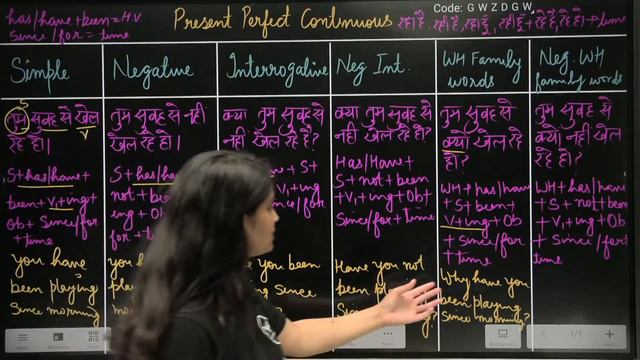 has/have + been = H.V.
Since/for = time
Present Perfect Continuous
Code: G W Z D G W
Simple
Negative
Interrogative
Neg Int.
WH Family
words
Neg. WH
family words
तुम सुबह से खेल
रहे हो।
S+has/have+
been+V₁+ing+
Ob+ Since/for
+time
you have
been playing
Since morning
तुम सुबह से नही
खेल रहे हो।
S+ has/have
not+been
ing+Ob
for+t
क्या तुम सुबह से
खेल रहे हो?
+ S+
V₁+ing
Since/for
you been
Since
क्या तुम सुबह से
नही खेल रहे हो?
Has/Have+
S+not+been
+V₁+ing+Ob+
Since/for+time
Have you not
been
तुम सुबह से
क्यो खेल रहे
हो?
WH+has/have
+S+been+
V₁+ing+Ob
+ Since/for
+time
Why have you
been playing
Since morning?
तुम सुबह से
क्यो नही खेल
रहे हो?
WH+has/have
+S+not+been
+V₁+ing+Ob
+ Since/for
time
Menu
Background
1/1
Add